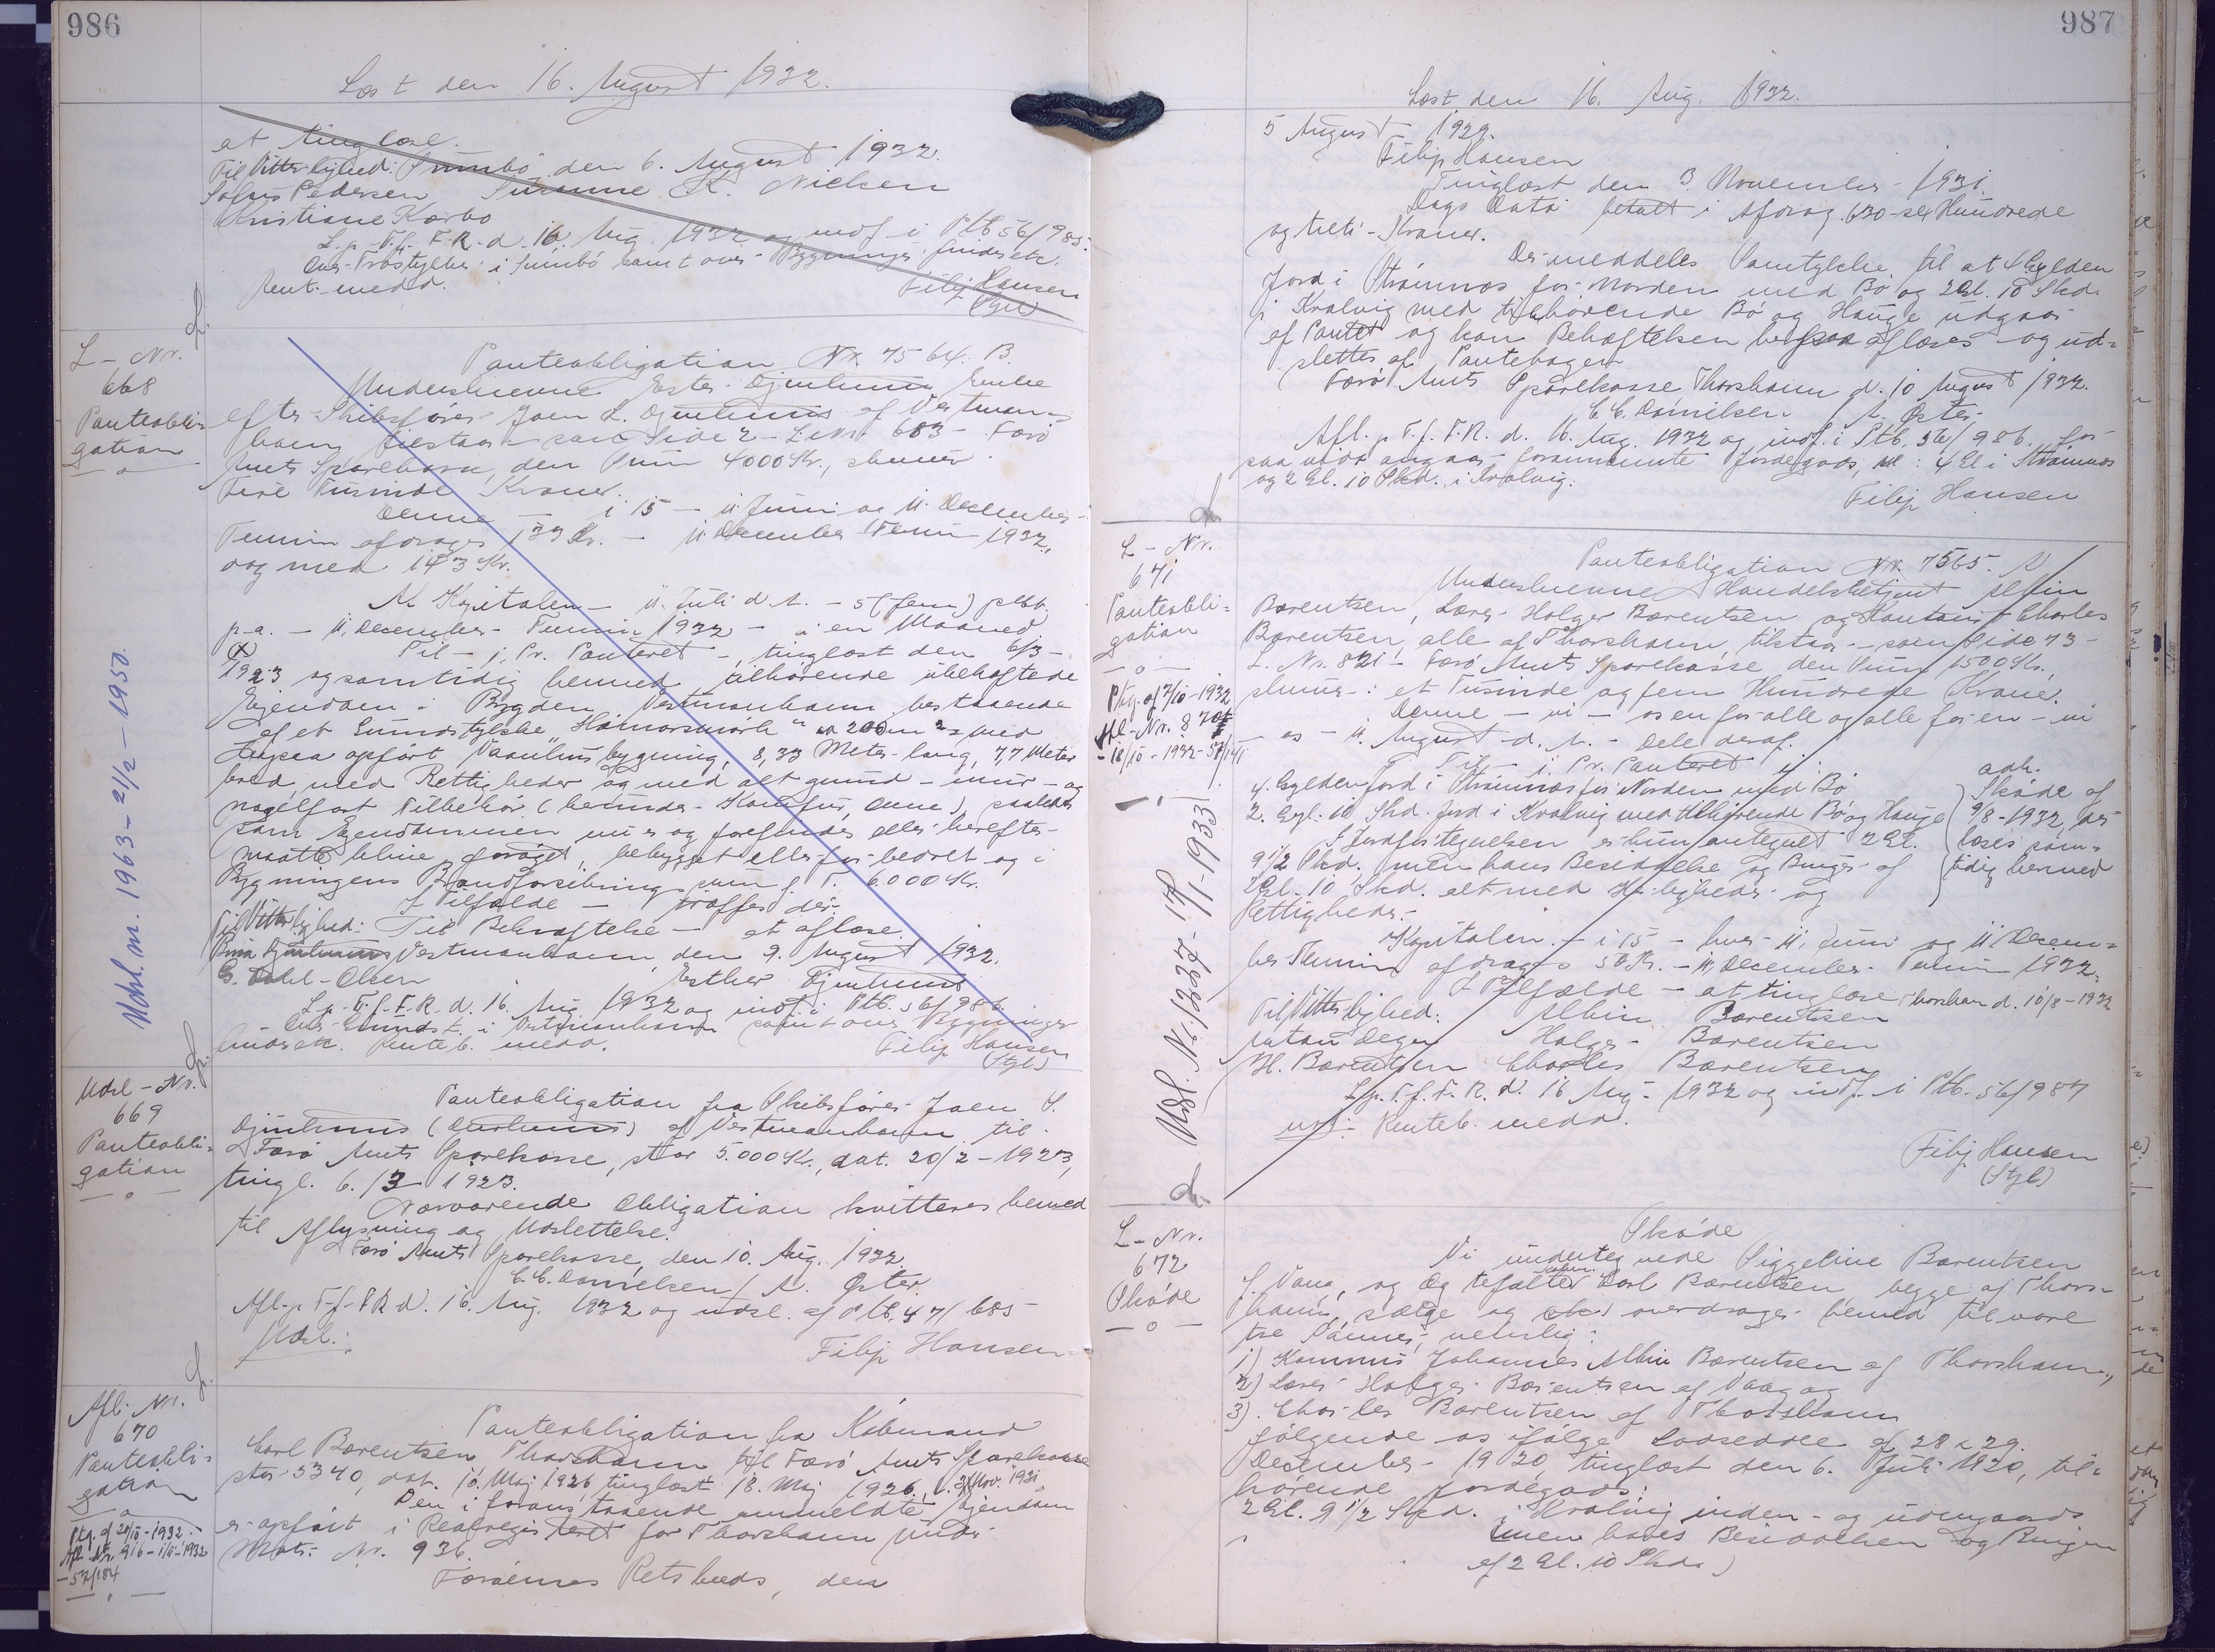 986
Læst den 16. August 1932.
et tinglæse.
Til Vitterlighed: Sumbö, den 6. August 1932.
Sofus Pedersen Susanne K. Nielsen
Kristiane Kærbo
L. p. T. f. F. R. d. 16. Aug. 1932 og indf. i Ptb 56/985.
Over- Tröstykker i Sumbö samt over- Bygninger findes etc.
Rent. medd.
Filip Hansen
L - Nr.
668
Panteobli-
gation
Panteobligation Nr. 7564. B.
Underskrevne Ester Djurhuus Enke
efter Skibsförer Joen L. Djurhuus af Vestman-
havn tilstaar - som Side 2 - L. Nr. 683 - Færö
Amts Sparekasse, den Sum 4000 Kr., skriver
Fire Tusinde Kroner.
Denne - i 15 - 11 Juni og 11 December-
Termin afdrages 133 Kr. - 11 December Termin 1932,
dog med 143 Kr.
Af Kapitalen - 11. Juli d. A. - 5 (fem) pCt.
p.a. - 11. December Termin 1932 - i en Maaned
Til - j. Pr. Panteret -, tinglæst den 6/3 -
1923 og samtidig hermed tilhörende ubehæftede
Ejendom i Bygden Vestmanhavn bestaaende
af et Grundstykke "Hamarsmörk" 200 m² med
derpaa opfört Vaaningsbygning, 8,33 Meter lang, 7,7 Meter
bred, med Rettigheder og med alt grund - mur - og
nagelfast Tilbehör (herunder Komfur, Ovne), saaledes
som Ejendommen nu er og forefindes eller herefter
maatte blive foröget, bebygget eller for-bedret og i
Bygningens Brandforsikringssum f. T. 6000 Kr.
I Tilfælde - træffes der.
Til Vitterlighed: Til Bekræftelse - et aflæse.
Djurhuus Vestmanhavn, den 9. August 1932.
G. Dahl-Olsen Esther Djurhuus
L. p. T. f. F. R. d. 16. Aug. 1932 og indf. i Ptb. 56/986.
Over Grundst. i Vestmanhavn samt over Bygninger
findes etc. Renteb. medd.
Filip Hansen
Udsl. m. 1963 - 2/2 - 1950.
Udsl - Nr.
669
Panteobli-
gation
Panteobligation fra Skibsförer Joen S.
Djurhuus (Durhuus) af Vestmanhavn til
Færö Amts Sparekasse, stor 5.000 Kr., dat. 20/2 - 1923,
tingl. 6./3 1923.
Nærværende Obligation kvitteres hermed
til Aflysning og Udslettelse.
Færö Amts Sparekasse, den 10. Aug. 1932.
C. C. Danielsen / A. Öster.
Afl. p. T. f. F. R. d. 16. Aug. 1932 og udsl. af Ptb. 47/685
Udsl.:
Filip Hansen
Afl. Nr.
670
Panteobli-
gation
Ptg. af 20/10 - 1932
Afl. Nr. 916 - 1/11 - 1932
- 57/184
Panteobligation fra Köbmand
Carl Bærentsen, Thorshavn til Færö Amts Sparekasse
stor 5340, dat. 10. Maj 1926, tinglæst 18. Maj 1926, 3. Nov. 1931
Den i foranstaaende ommeldte Ejendom
er opfört i Realregisteret for Thorshavn under
Matr. Nr. 936.
Færöernes Retskreds, den
987
Læst den 16. Aug. 1932.
5 August - 1929.
Filip Hansen
Tinglæst den 3 November 1931.
Dags Dato betalt i Afdrag 630 - sex Hundrede
og treti - Kroner.
Der meddeles Samtykke til at 4 Gylden
Jord i Strömnæs for Norden med Bö og 2 Gl. 10 Skd.
i Kvalvig med tilhörende Bö og Hauge udgaar
af Pantet og kan Behæftelsen herfor aflæses og ud-
slettes af Pantebogen
Færö Amts Sparekasse Thorshavn d. 10 August 1932.
C. C. Danielsen / A. Öster
Afl. p. T. f. F. R. d. 16. Aug. 1932 og indf. i Ptb. 56/986. for-
saa vidt angaar forannævnte Jordegods, : 4 Gl i Strömnæs
og 2 Gl. 10 Skd. i Kvalvig.
Filip Hansen
L - Nr.
671
Panteobli-
gation
Ptg. af 7/10 - 1932
Afl - Nr. 870
- 18/10 - 1932 - 57/141
Udsl. Nr. 1237 - 17/1 - 1933
Panteobligation Nr. 7565. A
Underskrevne Handelsbetjent Albin
Bærentsen, Lærer Holger Bærentsen og Kontorist Charles
Bærentsen, alle af Thorshavn, tilstaar - som Side 73 -
L. Nr. 821 - Færö Amts Sparekasse den Sum 1500 Kr.,
skriver: et Tusinde og fem Hundrede Kroner.
Denne - vi - os en for alle og alle for en - vi
os - 11. August d. A. - Dele deraf.
Til - j. Pr. Panteret i:
4. Gylden Jord i Strömnæs for Norden med Bö
2. Gyl. 10 Skd. Jord i Kvalvig med tilhörende Bö og Hauge
I Jordfortegnelsen er kun antegnet 2 Gl.
9 1/2 Skd., men hans Besiddelse og Bruger af
2 Gl. 10 Skd. alt med Herligheder og
Rettigheder.
adk.
Sköde af
9/8 - 1932, der
læses sam-
tidig hermed
Kapitalen - i 15 - hver 11. Juni og 11 Decem-
ber Termin afdrages 50 Kr. - 11. December Termin 1932.
I Tilfælde - at tinglæse Thorshavn d. 10/8 - 1932
Til Vitterlighed: Albin Bærentsen
Holger Bærentsen
H. Bærentsen Charles Bærentsen
L. p. T. f. F. R. d. 16 Aug. 1932 og indf. i Ptb. 56/987
Renteb. medd.
Filip Hansen
L - Nr.
672
Sköde
Sköde
Vi undertegnede Siggeline Bærentsen
f. Vang, og Ægtefælle Carl Bærentsen, begge af Thors-
havn, sælge og overdrager hermed til vore
tre Sönner, nemlig:
1) Kommis Johannes Albin Bærentsen af Thorshavn,
2) Lærer Holger Bærentsen af Vaag og
3) Charles Bærentsen af Thorshavn
fölgende os ifölge Lodseddel af 28 & 29.
December 1920, tinglæst den 6. Juli 1920, til-
hörende Jordegods:
2 Gl. 9 1/2 Skd. i Kvalvig inden- og udengaards
(men hans Besiddelsen og Brugen
af 2 Gl. 10 Skd.)